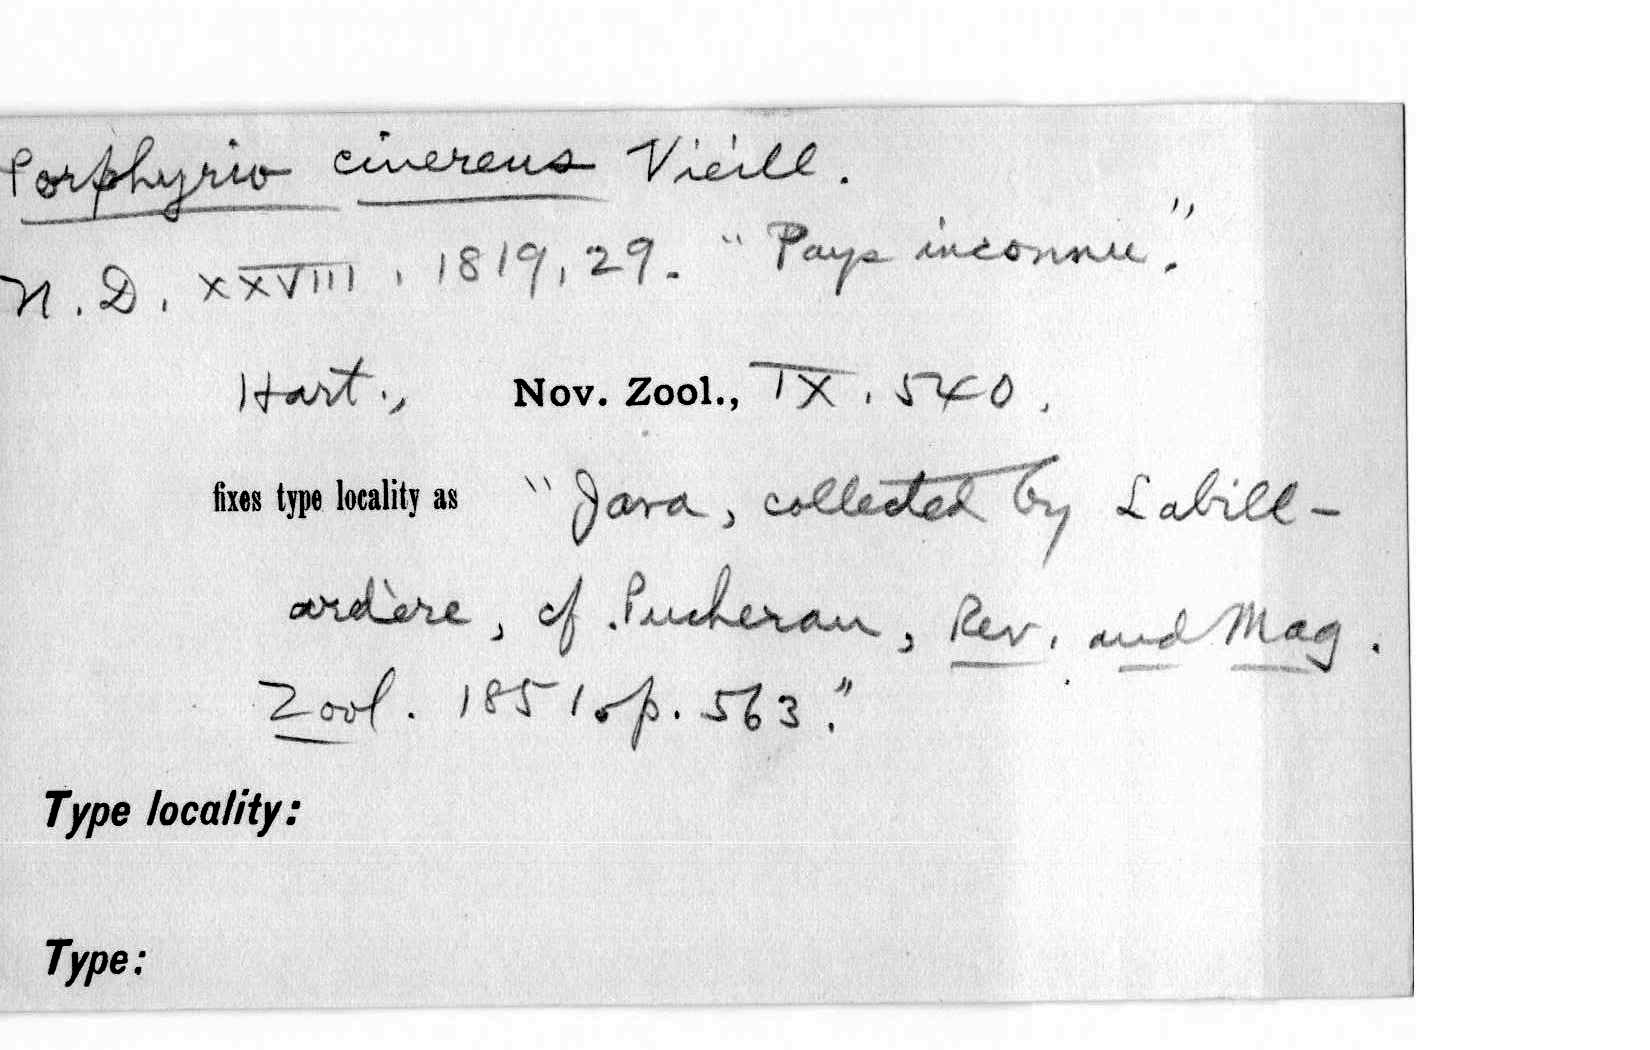 Porphyrio cinereus Vieill.
N. D. XXVIII, 1819, 29. "Pays inconnu."
Hart., Nov. Zool., IX, 540.
fixes type locality as "Java, collected by Labill-
ardière, cf. Pucheran, Rev. and Mag.
Zool. 1851, p. 563."
Type locality:
Type: